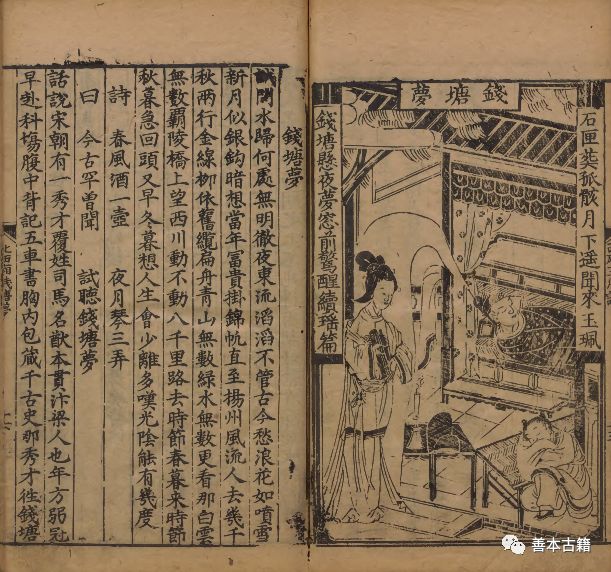 錢塘夢
石匣葬孤骸月下遥聞來玉珮
錢塘懸夜夢窓前驚醒續瑤篇
錢塘夢
試問水歸何處無明徹夜東流滔滔不管古今愁浪花如噴雪
新月似銀鈎暗想當年富貴掛錦帆直至揚州風流人去幾千
秋兩行金線柳依舊纜扁舟青山無數綠水無數更看那白雲
無數霸陵橋上望西川動不動八千里路去時節春暮來時節
秋暮急回頭又早冬暮想人生會少離多嘆光陰能有幾度
詩 春風酒一壺 夜月琴三弄
曰 今古罕曾聞 試聽錢塘夢
話說宋朝有一秀才覆姓司馬名猷本貫汴梁人也年方弱冠
早赴科塲腹中背記五車書胸內包藏千古史那秀才徃錢塘
善本古籍